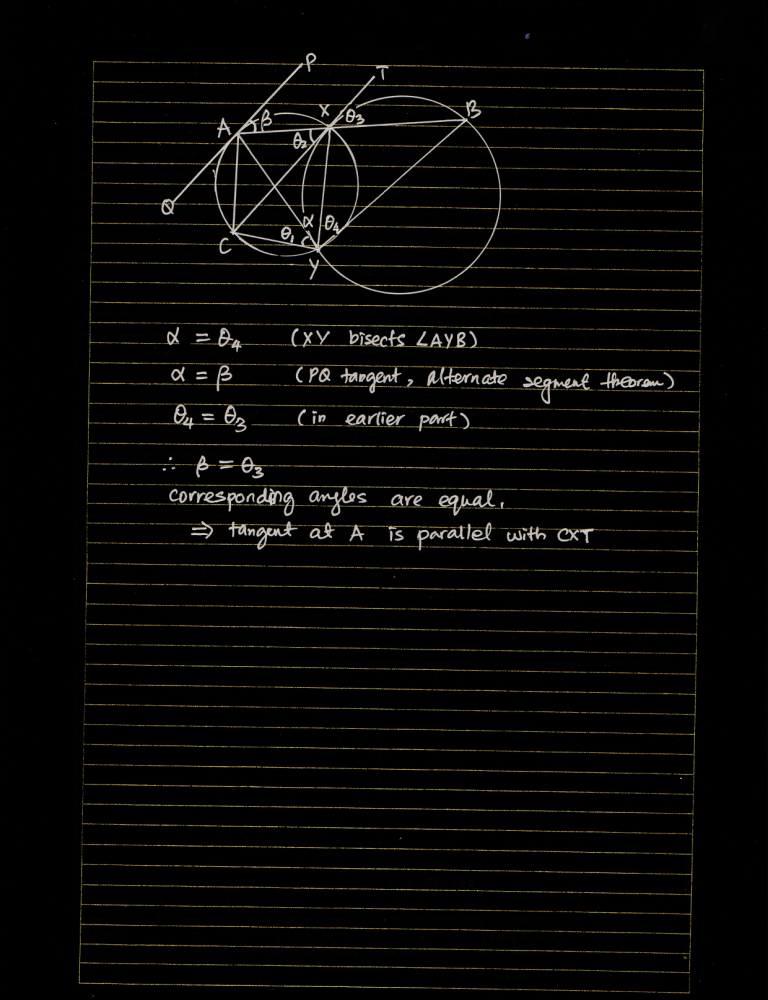 P
T
A β X θ3 B
θ2
Q
α θ4
C θ1
Y
α = θ4 (XY bisects ∠AYB)
α = β (PQ tangent, alternate segment theorem)
θ4 = θ3 (in earlier part)
∴ β = θ3
corresponding angles are equal.
⇒ tangent at A is parallel with CXT